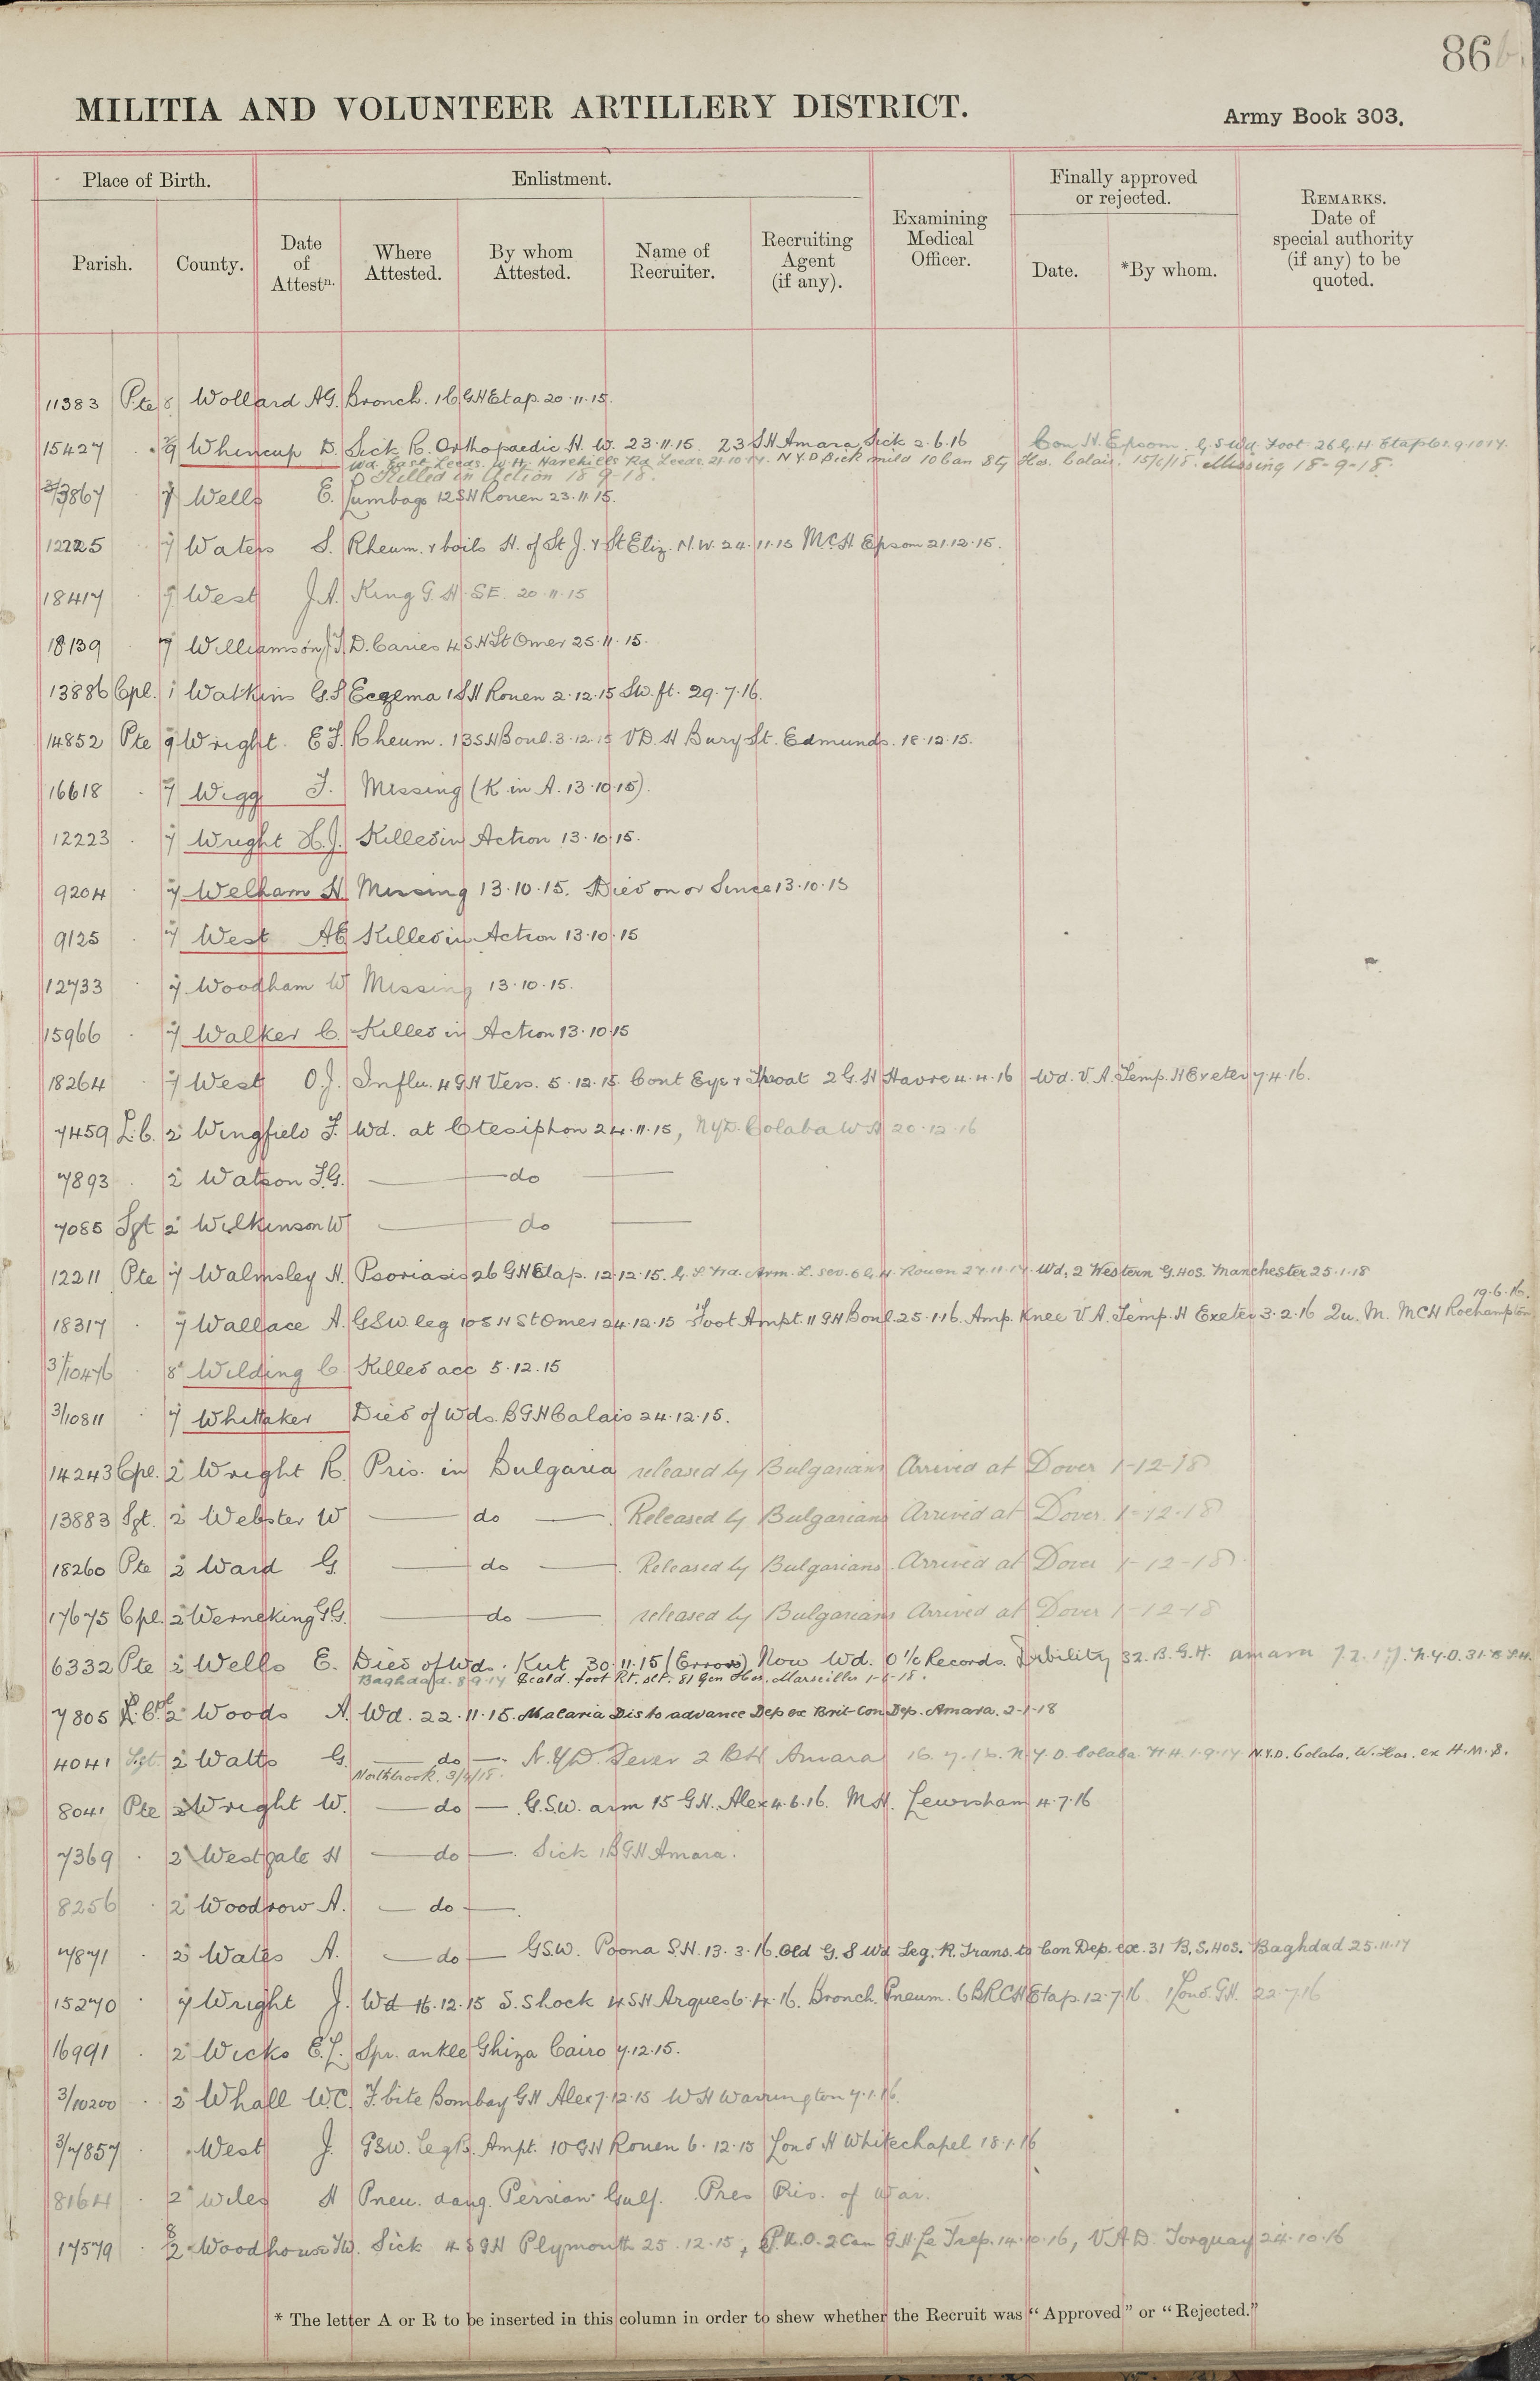 86
MILITIA AND VOLUNTEER ARTILLERY DISTRICT.
Army Book 303.
Place of Birth.
Enlistment.
Finally approved or rejected.
Parish.
County.
Date of Attestn.
Where Attested.
By whom Attested.
Name of Recruiter.
Recruiting Agent (if any).
Examining Medical Officer.
Date.
*By whom.
REMARKS. Date of special authority (if any) to be quoted.
11383 Pte 8 Wollard AG. Bronch. 1 C GH Etap. 20.11.15.
15427 . 9 Whincup D. Sick R. Orthopaedic H. W. 23.11.15. 23 SH Amara Sick 2.6.16 Con H. Epsom. G.S Wd Foot 26 G.H. Etaples.
Wd. East Leeds W.H. Harehills Rd Leeds. 21.10.17. N.Y.D Sick mild 10 Can Stg Hos. Calais. 15/6/18. Missing 18-9-18.
Killed in Action 18-9-18.
3/3867 7 Wells E. Lumbago 12 SH Rouen 23.11.15.
12225 7 Waters S. Rheum. & boils H. of St J. & St Eliz. N.W. 24.11.15 MCH Epsom 21.12.15.
18417 7 West J.A. King G. H. SE. 20.11.15
18139 7 Williamson J.J. D. Caries 4 SH St Omer 25.11.15.
13886 Cpl. 1 Watkins G.S Eczema 1 SH Rouen 2.12.15 Sw. ft. 29.7.16.
14852 Pte 9 Wright. E J. Rheum. 13 SH Boul. 3.12.15 VD. H Bury St. Edmunds. 18.12.15.
16618 . 7 Wigg J. Missing (K in A. 13.10.15).
12223 . 7 Wright H.J. Killed in Action 13.10.15.
9204 7 Welham H. Missing 13.10.15. Died on or Since 13.10.15
9125 . 7 West AE Killed in Action 13.10.15
12733 . 7 Woodham W Missing 13.10.15.
15966 . 7 Walker C. Killed in Action 13.10.15
18264 . 7 West O.J. Influ. 4 GH Vers. 5.12.15. Cont Eye & Throat 2 G. H Havre 4.4.16 Wd. V.A. Temp. H Exeter 7.4.16.
7459 L.C. 2 Wingfield J. Wd. at Ctesiphon 24.11.15, NYD. Colaba W H 20.12.16
7893 . 2 Watson J.G. — do —
7085 Sgt 2 Wilkinson W — do —
12211 Pte 7 Walmsley H. Psoriasis 26 GH Etap. 12.12.15. G.S Wd. Arm. L. sev. 6 G.H. Rouen 27.11.17. Wd, 2 Western G. Hos. Manchester 25.1.18
19.6.16.
18317 . 7 Wallace A. GSW leg 10 SH St Omer 24.12.15 Foot Ampt. 11 GH Boul. 25.1.16. Amp. Knee V.A. Temp. H Exeter 3.2.16 Qu. M. MCH Roehampton
3/10476 8 Wilding C Killed acc 5.12.15
3/10811 . 7 Whittaker Died of Wds. B GH Calais 24.12.15.
14243 Cpl. 2 Wright R. Pris. in Bulgaria released by Bulgarians Arrived at Dover 1-12-18
13883 Sgt. 2 Webster W — do — Released by Bulgarians Arrived at Dover. 1-12-18
18260 Pte 2 Ward G. — do — Released by Bulgarians. Arrived at Dover 1-12-18.
17675 Cpl. 2 Werneking G.G. — do — released by Bulgarians Arrived at Dover 1-12-18
6332 Pte 2 Wells E. Died of Wds. Kut 30.11.15 (Error) Now Wd. O i/c Records. Debility 32. B.G.H. Amara
Baghdad. 8.9.17 Scald. foot Rt. slt. 81 Gen Hos. Marseilles
7805 L.Cpl 2 Woods A. Wd. 22.11.15. Malaria Dis to advance Dep ex Brit-Con Dep. Amara. 2-1-18
4041 Sgt. 2 Watts G. — do — N.Y.D. Fever 2 BH Amara N.Y.D. Colaba W.H. 1.9.17 N.Y.D. Colaba. W. Hos. ex H.M.S.
Northbrook. 3/4/18.
8041 Pte 2 Wright W. — do — G.S.W. arm 15 G.H. Alex 4.6.16. M.H. Lewisham 4.7.16
7369 . 2 Westgate H — do — Sick 1 B GH Amara.
8256 . 2 Woodrow A. — do —
7871 . 2 Wales A. — do — GSW. Poona S.H. 13.3.16. Old G.S Wd Leg. R. Trans. to Con Dep. ex. 31 B.S. Hos. Baghdad 25.11.17
15270 . 7 Wright J. Wd 16.12.15 S. Shock 4 SH Arques 6.4.16. Bronch. Pneum. 6 BRCH Etap. 12.7.16. 1 Lond. GH. 22.7.16
16991 . 2 Wicks E.L. Spr. ankle Ghiza Cairo 7.12.15.
3/10200 . 2 Whall W.C. F. bite Bombay GH Alex 7.12.15 W H Warrington 7.1.16.
3/7857 . West J. GSW. leg B. Ampt. 10 GH Rouen 6.12.15 Lond H Whitechapel 18.1.16
8164 . 2 Wiles H Pneu. dang. Persian Gulf. Pres Pris. of War.
17579 . 2 Woodhouse J.W. Sick 4 S GH Plymouth 25.12.15, P.U.O. 2 Can GH Le Trep. 14.10.16, V.A.D. Torquay 24.10.16
* The letter A or R to be inserted in this column in order to shew whether the Recruit was “Approved” or “Rejected.”